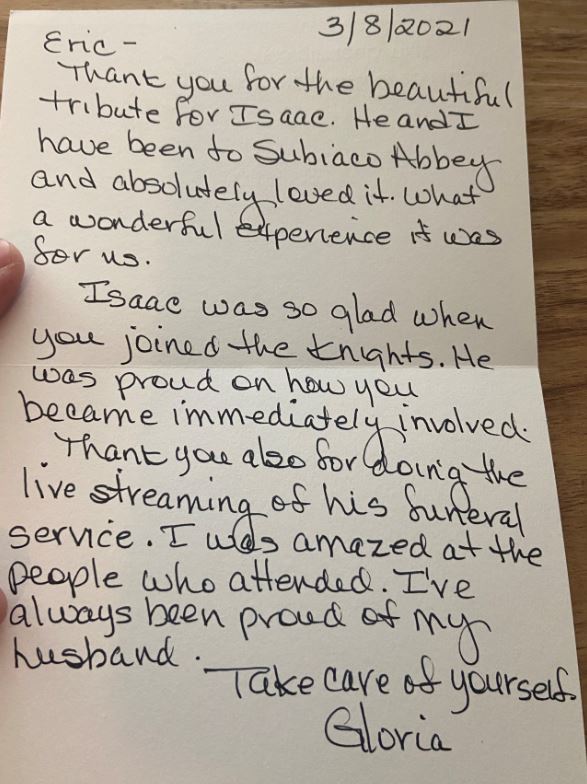 3/8/2021
Eric-
Thank you for the beautiful
tribute for Isaac. He and I
have been to Subiaco Abbey
and absolutely loved it. What
a wonderful experience it was
for us.
Isaac was so glad when
you joined the Knights. He
was proud on how you
became immediately involved.
Thank you also for doing the
live streaming of his funeral
service. I was amazed at the
people who attended. I've
always been proud of my
husband.
Take care of yourself.
Gloria